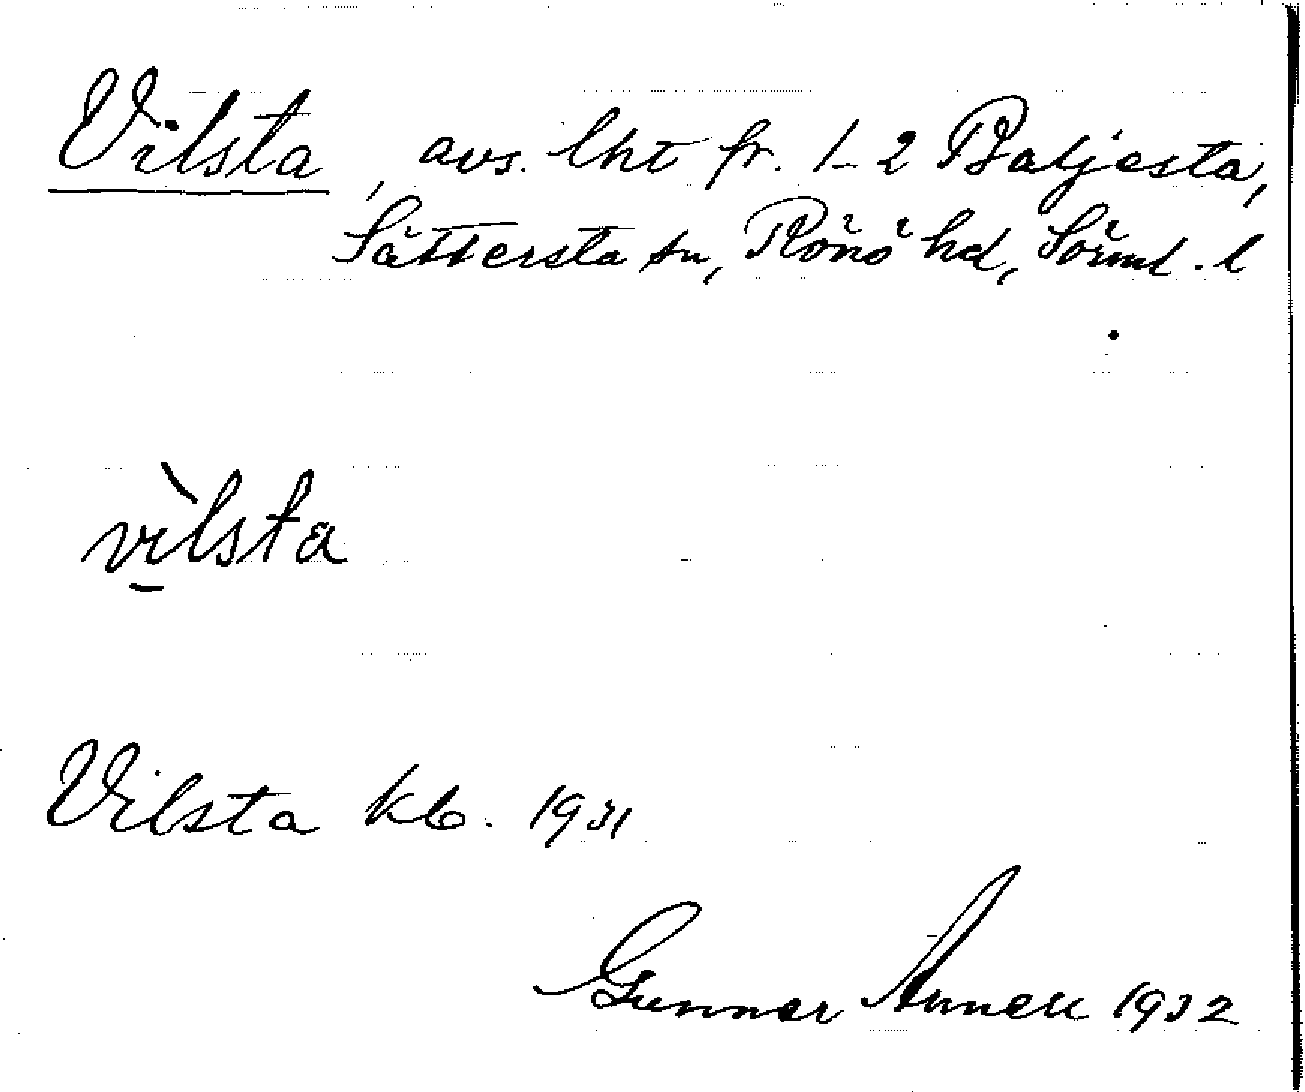 Vilsta, avs. lht fr. 1-2 Baljesta,
Sättersta sn, Rönö hd, Sörml. l
vìlsta
Vilsta kb. 1931
Gunnar Annell 1932